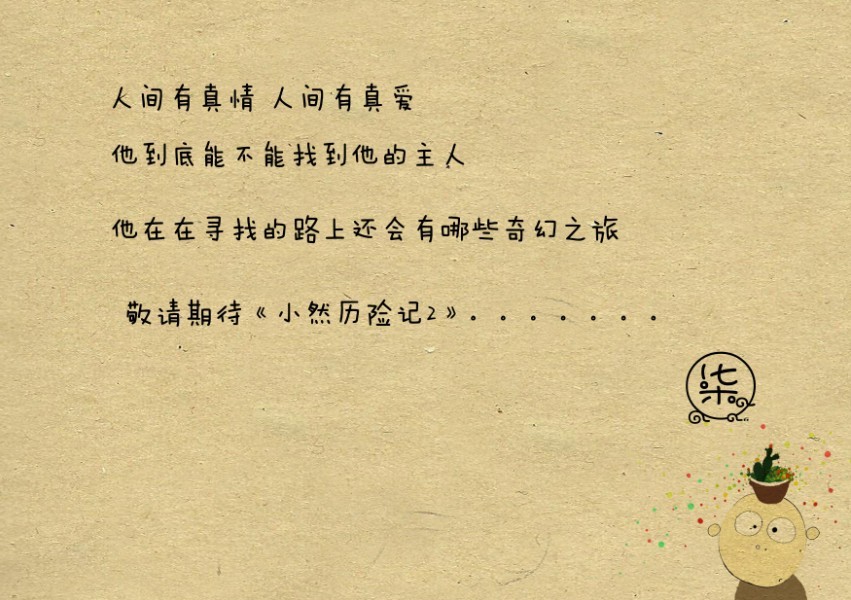 人间有真情 人间有真爱
他到底能不能找到他的主人
他在在寻找的路上还会有哪些奇幻之旅
敬请期待《小然历险记2》。。。。。。。
柒